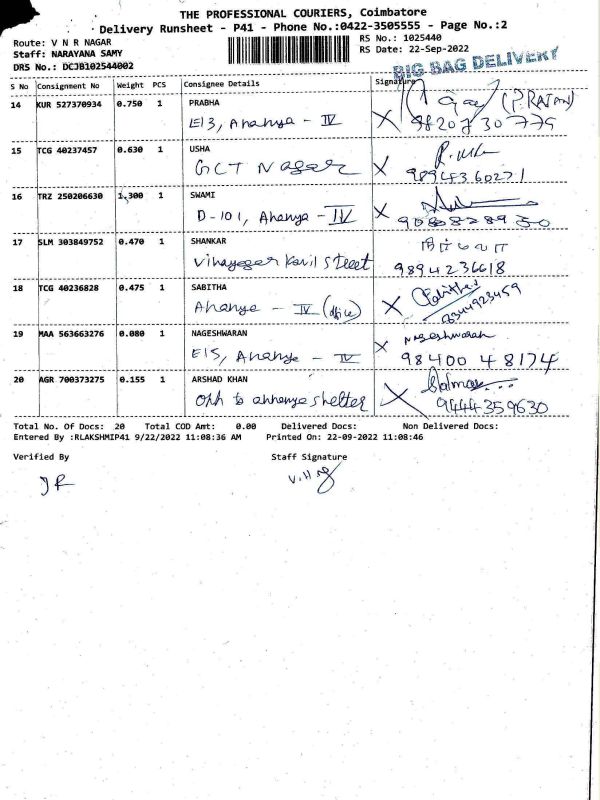 THE PROFESSIONAL COURIERS, Coimbatore
Delivery Runsheet - P41 - Phone No.:0422-3505555 - Page No.:2
Route: V N R NAGAR
RS No.: 1025440
Staff: NARAYANA SAMY
RS Date: 22-Sep-2022
DRS No.: DCJB102544002
BIG BAG DELIVERY
S No Consignment No Weight PCS Consignee Details Signature
14 KUR 527370934 0.750 1 PRABHA
E13, Ananya - IV
15 TCG 40237457 0.630 1 USHA
GCT Nagar
16 TRZ 250206630 1.300 1 SWAMI
D-101, Ananya - IV
17 SLM 303849752 0.470 1 SHANKAR
Vinayagar Kovil Street
9894236618
18 TCG 40236828 0.475 1 SABITHA
Ananya - IV (office)
19 MAA 563663276 0.080 1 NAGESHWARAN
Nageshwaran
E15, Ananya - IV
98400 48174
20 AGR 700373275 0.155 1 ARSHAD KHAN
Opp to annanya shelter
9444359630
Total No. Of Docs: 20 Total COD Amt: 0.00 Delivered Docs: Non Delivered Docs:
Entered By :RLAKSHMIP41 9/22/2022 11:08:36 AM Printed On: 22-09-2022 11:08:46
Verified By Staff Signature